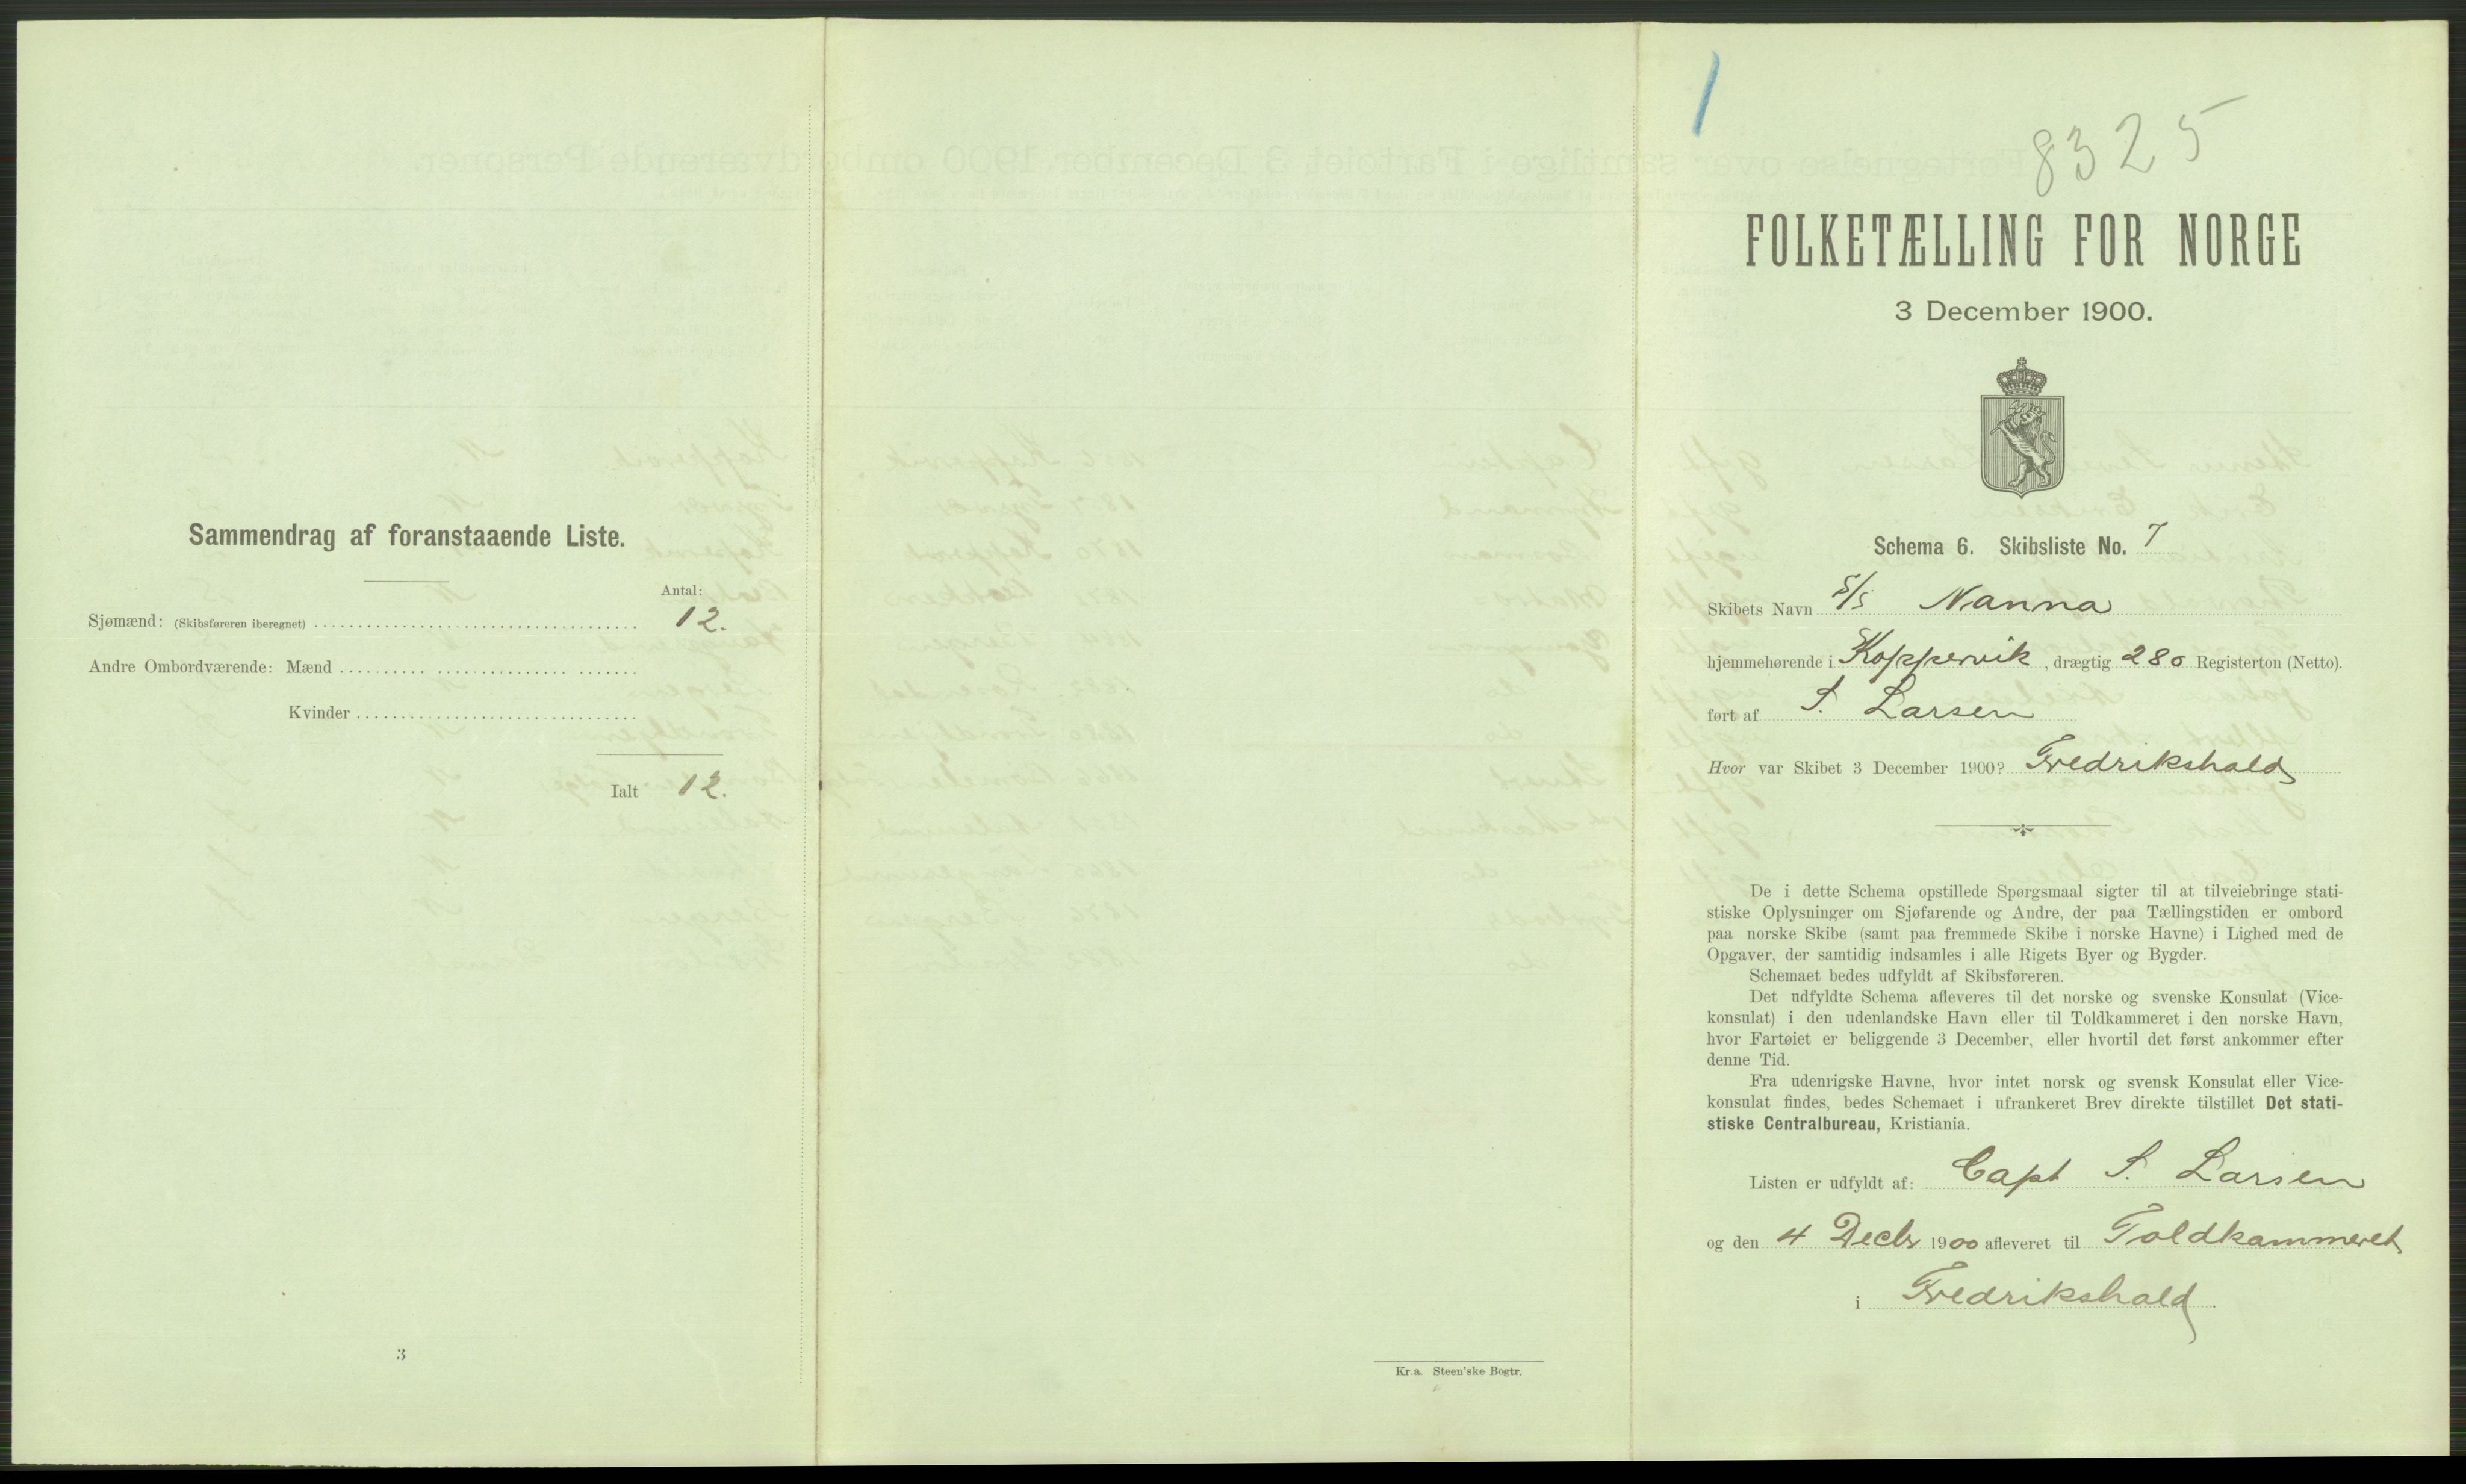 Sammendrag af foranstaaende Liste.
Antal:
Sjømænd: (Skibsføreren iberegnet) 12.
Andre Ombordværende: Mænd
Kvinder
Ialt 12.
3
Kr.a. Steen'ske Bogtr.
8325
FOLKETÆLLING FOR NORGE
3 December 1900.
Schema 6. Skibsliste No. 7
Skibets Navn S/S Nanna
hjemmehørende i Koppervik, drægtig 280 Registerton (Netto).
ført af S. Larsen
Hvor var Skibet 3 December 1900? Fredrikshald
De i dette Schema opstillede Spørgsmaal sigter til at tilveiebringe stati-
stiske Oplysninger om Sjøfarende og Andre, der paa Tællingstiden er ombord
paa norske Skibe (samt paa fremmede Skibe i norske Havne) i Lighed med de
Opgaver, der samtidig indsamles i alle Rigets Byer og Bygder.
Schemaet bedes udfyldt af Skibsføreren.
Det udfyldte Schema afleveres til det norske og svenske Konsulat (Vice-
konsulat) i den udenlandske Havn eller til Toldkammeret i den norske Havn,
hvor Fartøiet er beliggende 3 December, eller hvortil det først ankommer efter
denne Tid.
Fra udenrigske Havne, hvor intet norsk og svensk Konsulat eller Vice-
konsulat findes, bedes Schemaet i ufrankeret Brev direkte tilstillet Det stati-
stiske Centralbureau, Kristiania.
Listen er udfyldt af: Capt S. Larsen
og den 4 Decbr 1900 afleveret til Toldkammeret
i Fredrikshald.